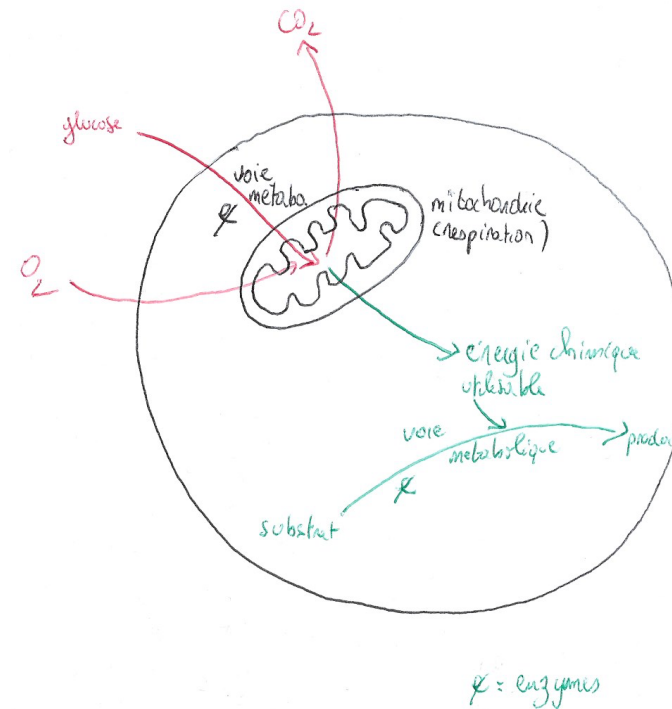 CO2
glucose
voie
metabo.
mitochondrie
(respiration)
O2
énergie chimique
utilisable
voie
metabolique
substrat
produ
= enzymes